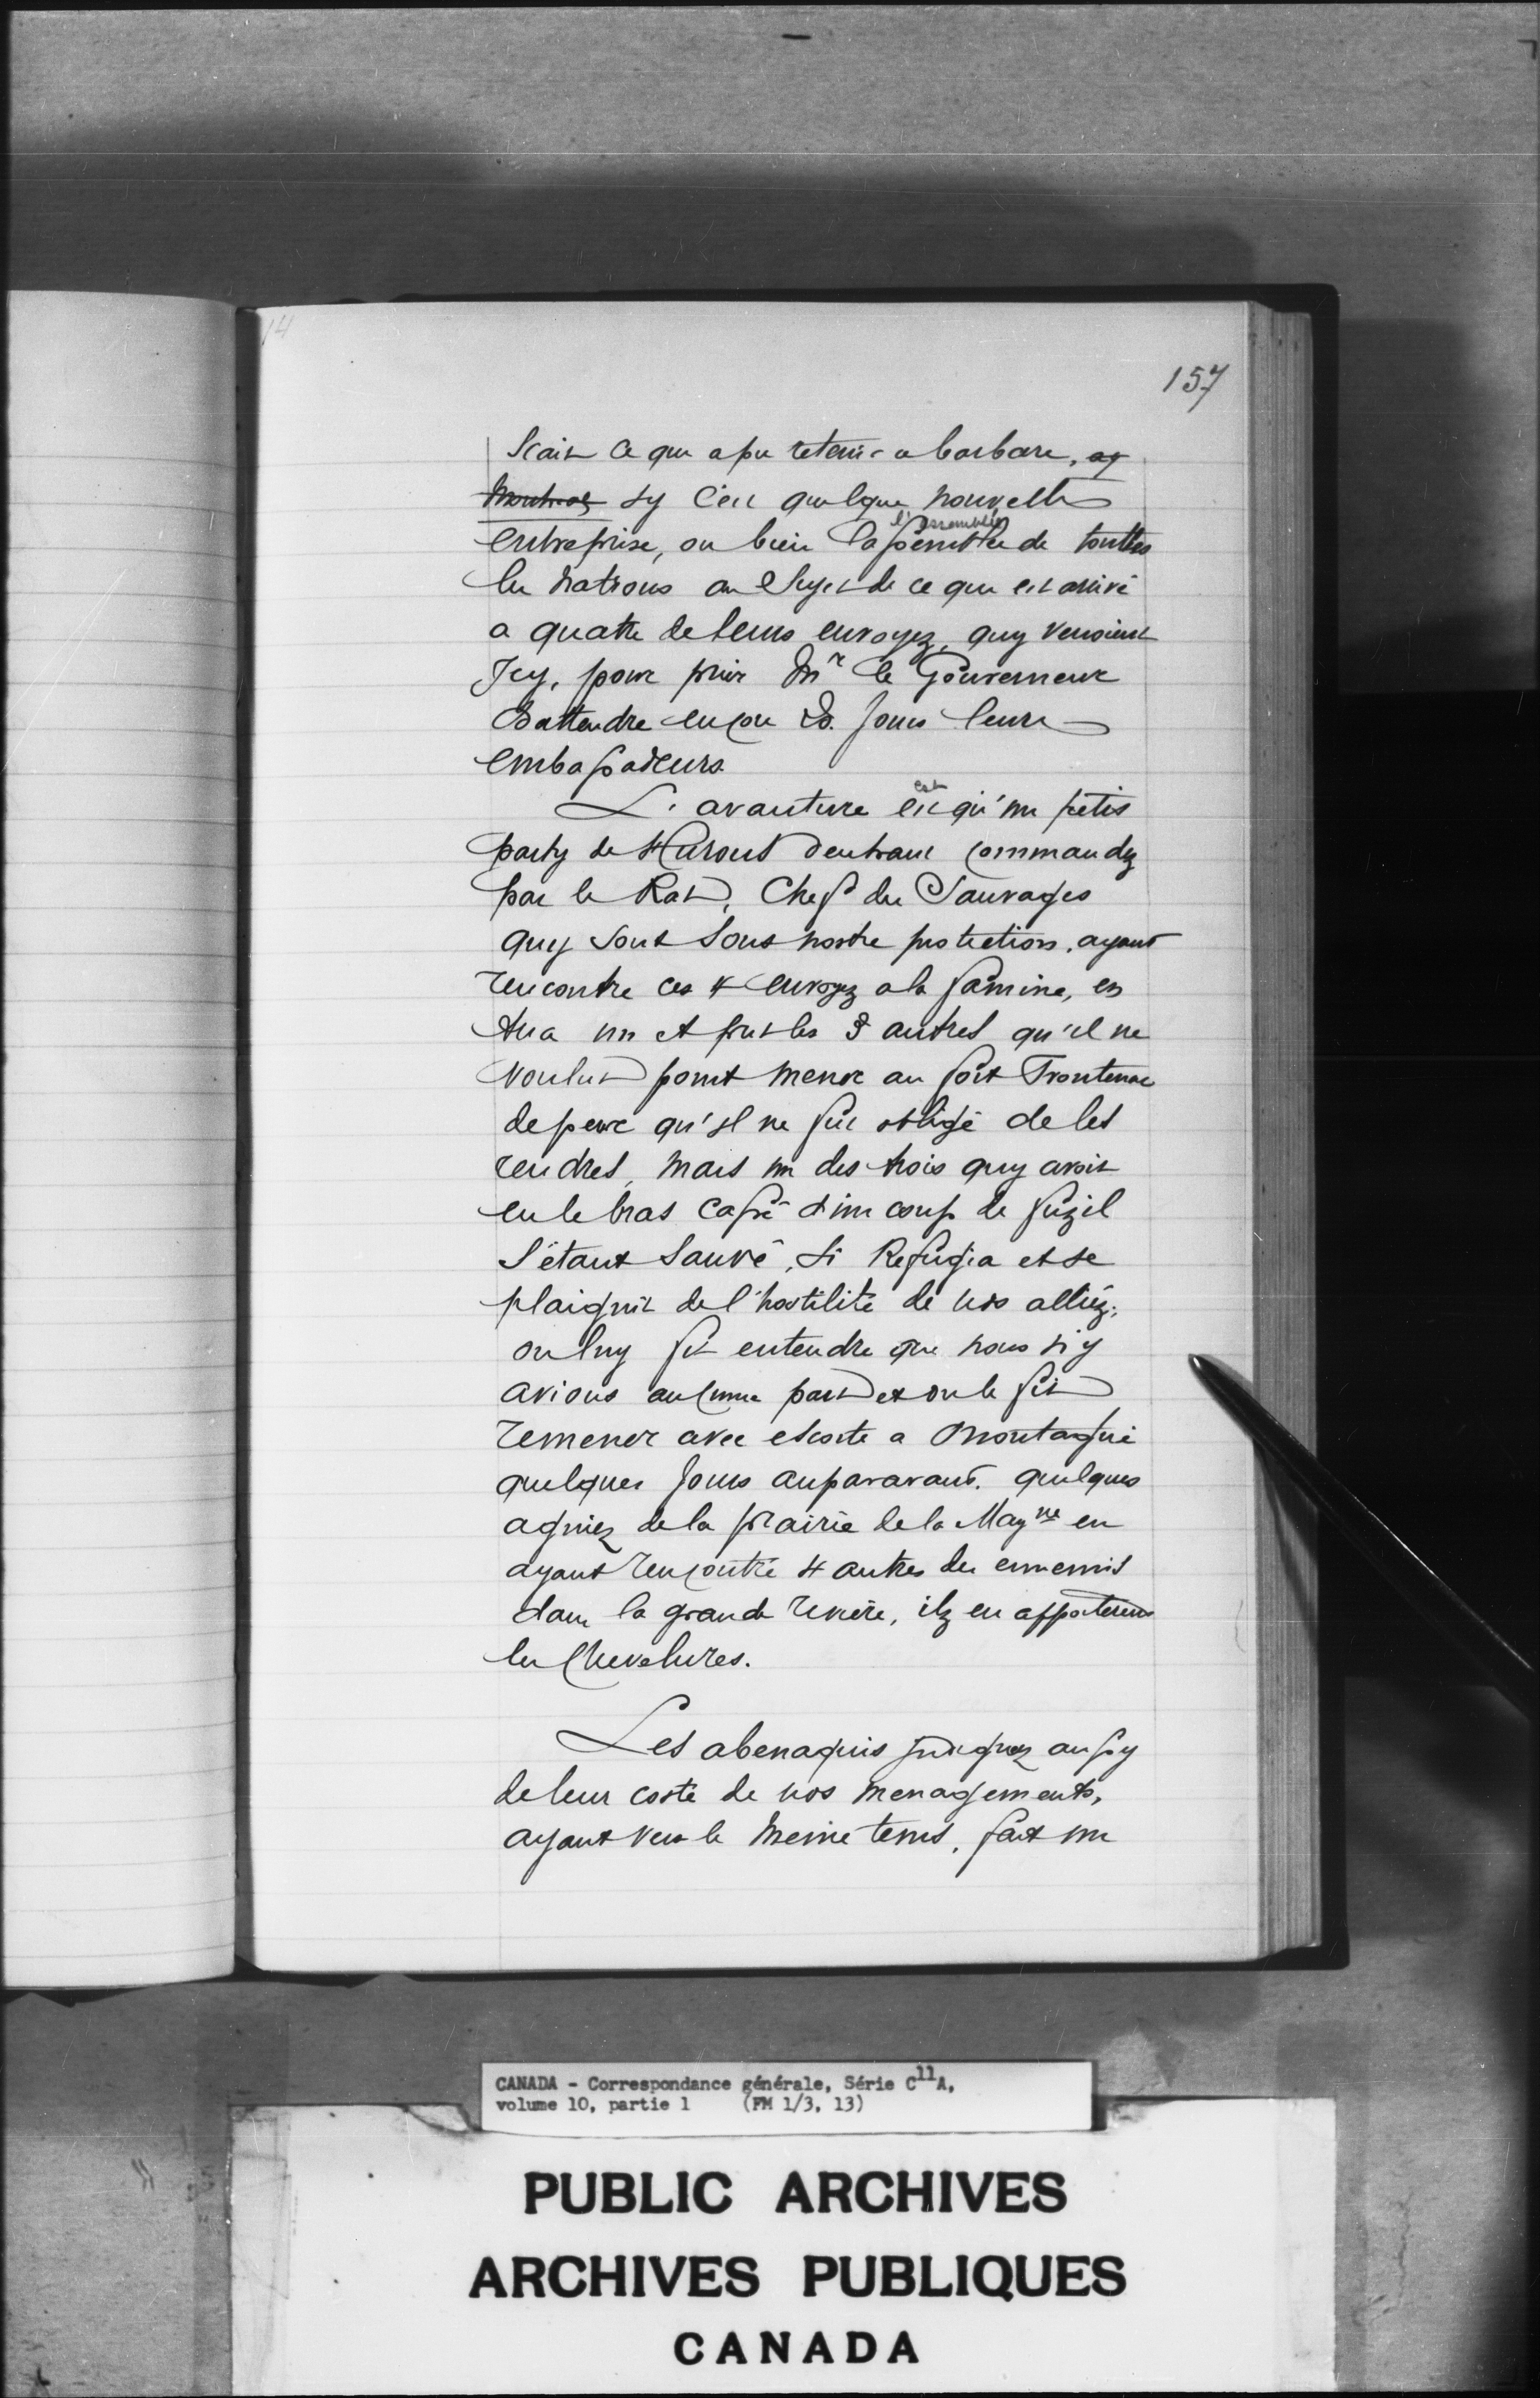 14
157
scait ce qui a pu retenir ce barbare, ~~ay~~
~~Montreal~~ sy c'est quelque nouvelle
l'assemblée
entreprise, ou bien la semblée de touttes
les nations au sujet de ce qui est arrivé
a quatre de leurs envoyez, quy venoient
Jcy, pour prier Mr le Gouverneur
d'attendre encore jours leurs
embassadeurs
est
L'avanture est qu'un petit
party de Hurons d'entrant commandez
par le Rat, Chef des Sauvages
quy sont sous nostre protection, ayant
rencontre ces 4 envoyez a la famine, en
tua un et prit les 3 autres qu'il ne
voulut point mener au fort Frontenac
de peur qu'il ne fut obligé de les
rendres, mais un des trois quy avoit
eu le bras cassé d'un coup de fuzil
s'étant sauvé, si Refugia et se
plaignit de l'hostilité de nos alliéz;
on luy fit entendre que nous n'y
avions aucune part et on le fit
remener avec escorte a Montagué
quelques jours auparavant. quelques
agniez de la prairie de la Magne en
ayant rencontré 4 autres des ennemis
dans la grande riviere, ilz en apporterent
les Chevelures.
Les abenaquis indignez aussy
de leur costé de nos menagements,
ayant vers le meme tems, fait un
CANADA - Correspondance générale, Série C11A,
volume 10, partie 1 (FM 1/3, 13)
PUBLIC ARCHIVES
ARCHIVES PUBLIQUES
CANADA